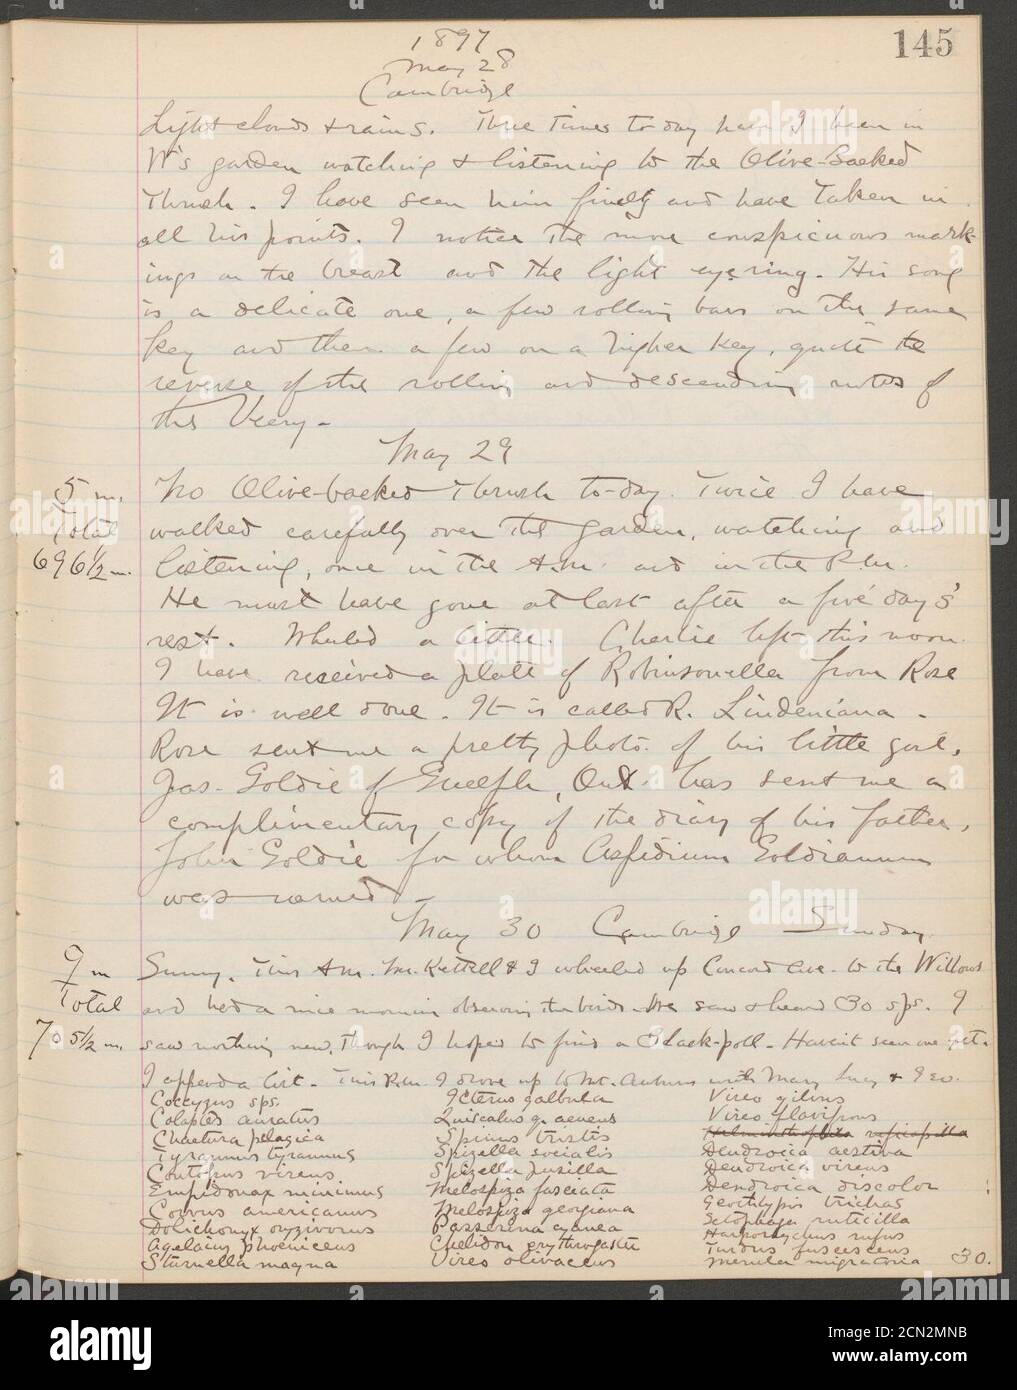 145
1897
May 28
Cambridge
Light clouds & rains. Three times to-day have I been in
W's garden watching & listening to the Olive-backed
Thrush. I have seen him finely and have taken in
all his points. I notice the more conspicuous mark-
ings on the breast and the light eye ring. His song
is a delicate one, a few rolling bars on the same
key and then a few on a higher key, quite the
reverse of the rolling and descending notes of
the Veery.
May 29
5 m.
Total
696 1/2 m.
No Olive-backed Thrush to-day. Twice I have
walked carefully over the garden, watching and
listening, once in the A.M. and in the P.M.
He must have gone at last after a five day's
rest. Wheeled a little. Charlie left this noon.
I have received a plate of Robinsonella from Rose
It is well done. It is called R. Lindeniana.
Rose sent me a pretty photo. of his little girl.
Jas. Goldie of Guelph, Ont. has sent me a
complimentary copy of the diary of his father,
John Goldie for whom Aspidium Goldianum
was named.
May 30 Cambridge Sunday.
9 m
Total
705 1/2 m.
Sunny. This A.M. Mr. Kettell & I wheeled up Concord Ave. to the Willows
and had a nice morning observing the birds. We saw & heard 30 sps. I
saw nothing new, though I hoped to find a Black-poll. Haven't seen one yet.
I append a list. This P.M. I drove up to Mt. Auburn with Mary, Lucy & Geo.
Coccyzus sps. Icterus galbula Vireo gilvus
Colaptes auratus Quiscalus q. aeneus Vireo flavifrons
Chaetura pelagica Spinus tristis Helminthophila ruficapilla
Tyrannus tyrannus Spizella socialis Dendroica aestiva
Contopus virens Spizella pusilla Dendroica virens
Empidonax minimus Melospiza fasciata Dendroica discolor
Corvus americanus Melospiza georgiana Geothlypis trichas
Dolichonyx oryzivorus Passerina cyanea Setophaga ruticilla
Agelaius phoeniceus Chelidon erythrogaster Harporhynchus rufus
Sturnella magna Vireo olivaceus Turdus fuscescens
Merula migratoria 30.
alamy
Image ID: 2CN2MNB
www.alamy.com